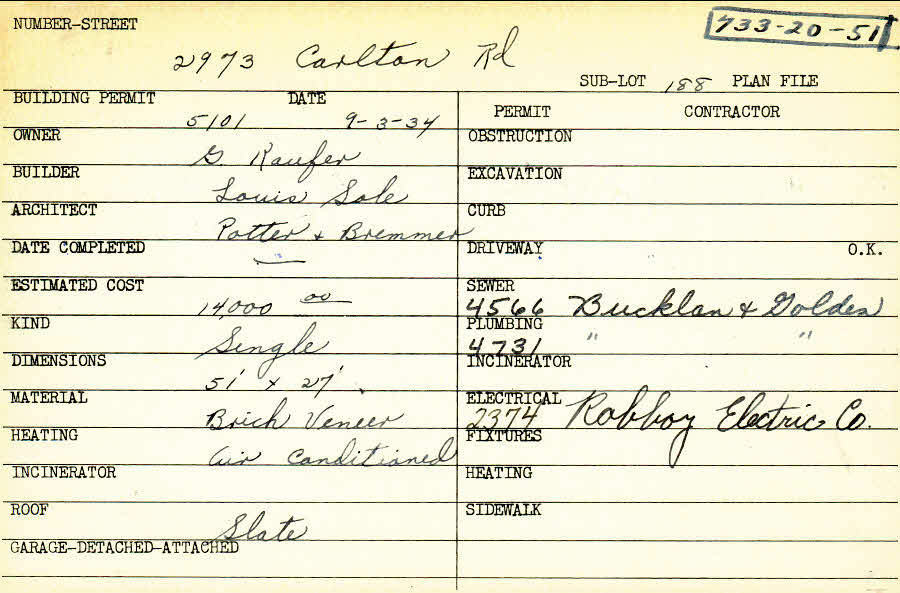 NUMBER-STREET
733-20-51
2973 Carlton Rd
SUB-LOT 188 PLAN FILE
BUILDING PERMIT DATE
5101 9-3-34
PERMIT CONTRACTOR
OWNER
G. Kaufer
BUILDER
Louis Sole
ARCHITECT
Potter + Bremmer
DATE COMPLETED
ESTIMATED COST
14,000 00
KIND
Single
DIMENSIONS
51' x 27'
MATERIAL
Brick Veneer
HEATING
Air Conditioned
INCINERATOR
ROOF
Slate
GARAGE-DETACHED-ATTACHED
OBSTRUCTION
EXCAVATION
CURB
DRIVEWAY O.K.
SEWER
4566 Bucklan + Golden
PLUMBING
4731 " "
INCINERATOR
ELECTRICAL
2374 Robboy Electric Co.
FIXTURES
HEATING
SIDEWALK